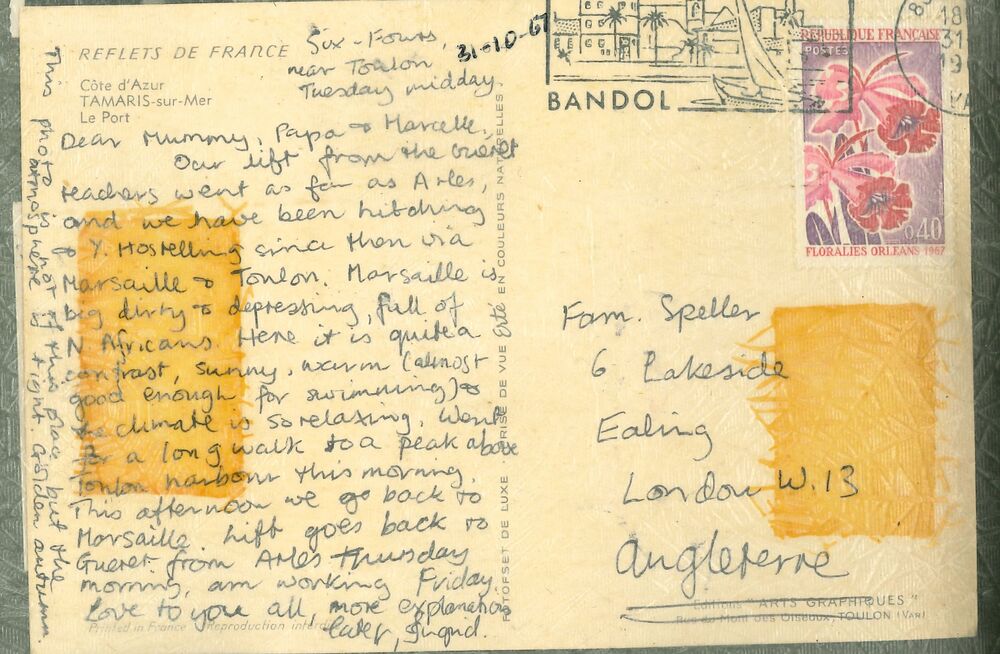 REFLETS DE FRANCE
Côte d'Azur
TAMARIS-sur-Mer
Le Port
Six-Fours,
near Toulon
Tuesday midday.
31-10-67
Dear Mummy, Papa & Marcelle,
Our lift from the Gueret
teachers went as far as Arles,
and we have been hitching
& Y. Hostelling since then via
Marsaille & Toulon. Marsaille is
big dirty & depressing, full of
N Africans. Here it is quite a
contrast, sunny, warm (almost
good enough for swimming) &
the climate is so relaxing. Went
for a long walk to a peak above
Toulon harbour this morning.
This afternoon we go back to
Marsaille. Lift goes back to
Gueret from Arles Thursday
morning, am working Friday.
Love to you all, more explanations
later, Ingrid.
This photo is not of this place but the
atmosphere is right. Golden autumn.
Printed in France - Reproduction interdite
PHOTOFSET DE LUXE - PRISE DE VUE Erté EN COULEURS NATURELLES.
BANDOL
18
31
19
VAR
REPUBLIQUE FRANÇAISE
POSTES
0,40
FLORALIES ORLEANS 1967
Fam. Speller
6 Lakeside
Ealing
London W.13
Angleterre
Editions "ARTS GRAPHIQUES"
Rue du Mont des Oiseaux, TOULON (VAR)